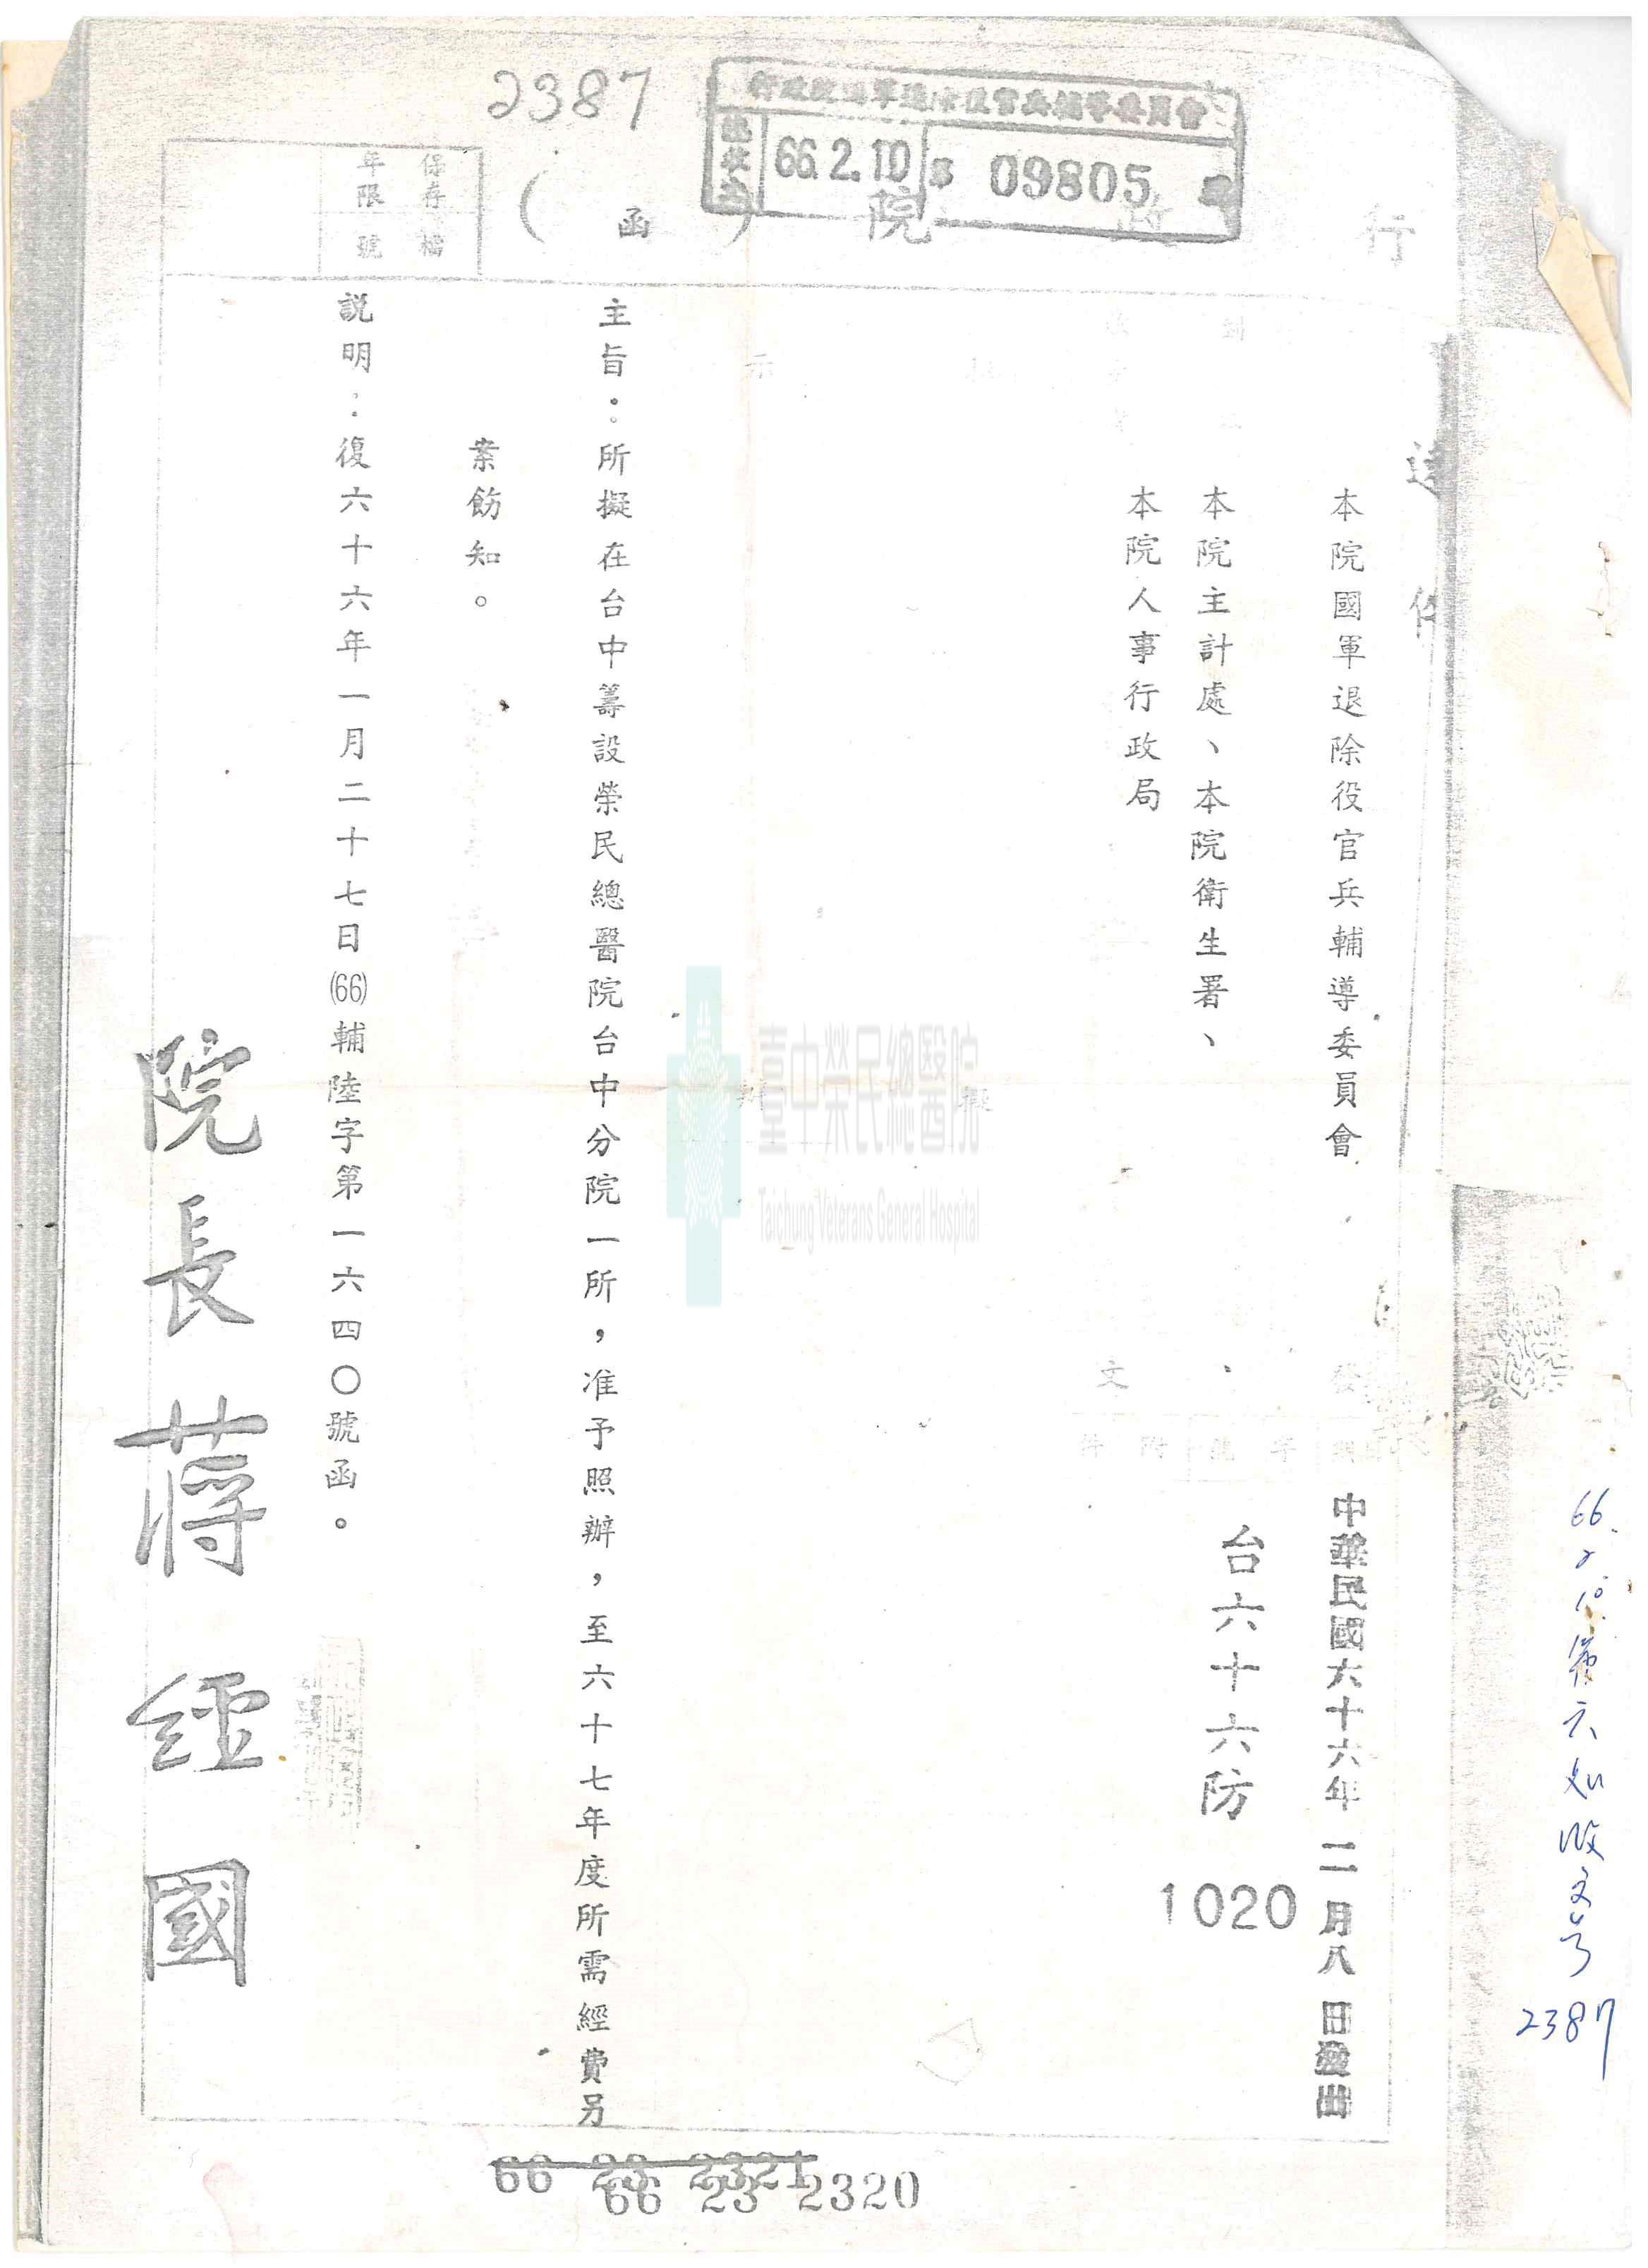 2387
行政院國軍退除役官兵輔導委員會
總收文
66.2.10
09805
行政院
(函)
保存年限
檔號
本院國軍退除役官兵輔導委員會
本院主計處、本院衛生署、
本院人事行政局
發文
日期
字號
附件
中華民國六十六年二月八日發出
台六十六防
1020
主旨：所擬在台中籌設榮民總醫院台中分院一所，准予照辦，至六十七年度所需經費另
案飭知。
說明：復六十六年一月二十七日(66)輔陸字第一六四〇號函。
院長蔣經國
臺中榮民總醫院
Taichung Veterans General Hospital
擬辦
66 23 2321
66 23 2320
66.2.10
2387